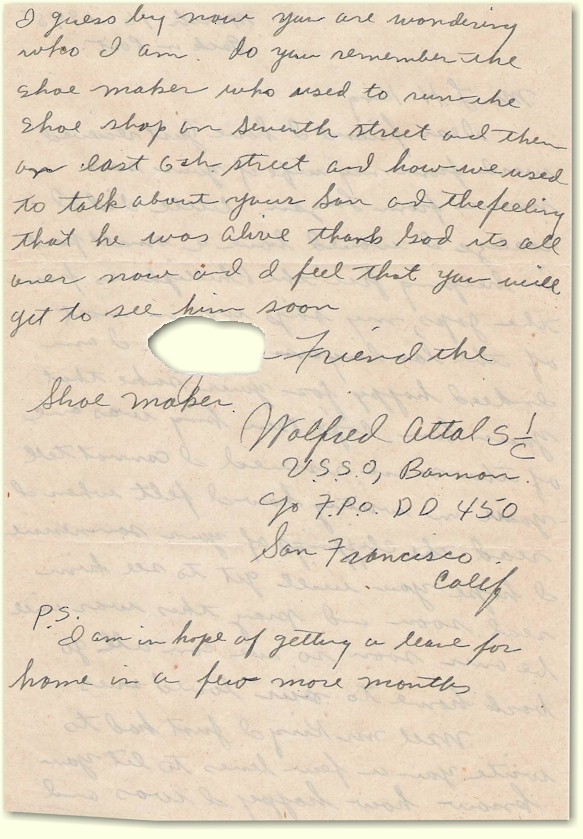 I guess by now you are wondering
who I am. do you remember the
shoe maker who used to run the
shoe shop on seventh street and then
on east 6th street and how we used
to talk about your son ad the feeling
that he was alive thank God its all
over now and I feel that you will
get to see him soon
Friend the
Shoe maker.
Walfred Attal S 1/c
U.S.S. O, Bannon.
c/o F.P.O. DD 450
San Francisco
Calif
P.S.
I am in hope of getting a leave for
home in a few more months